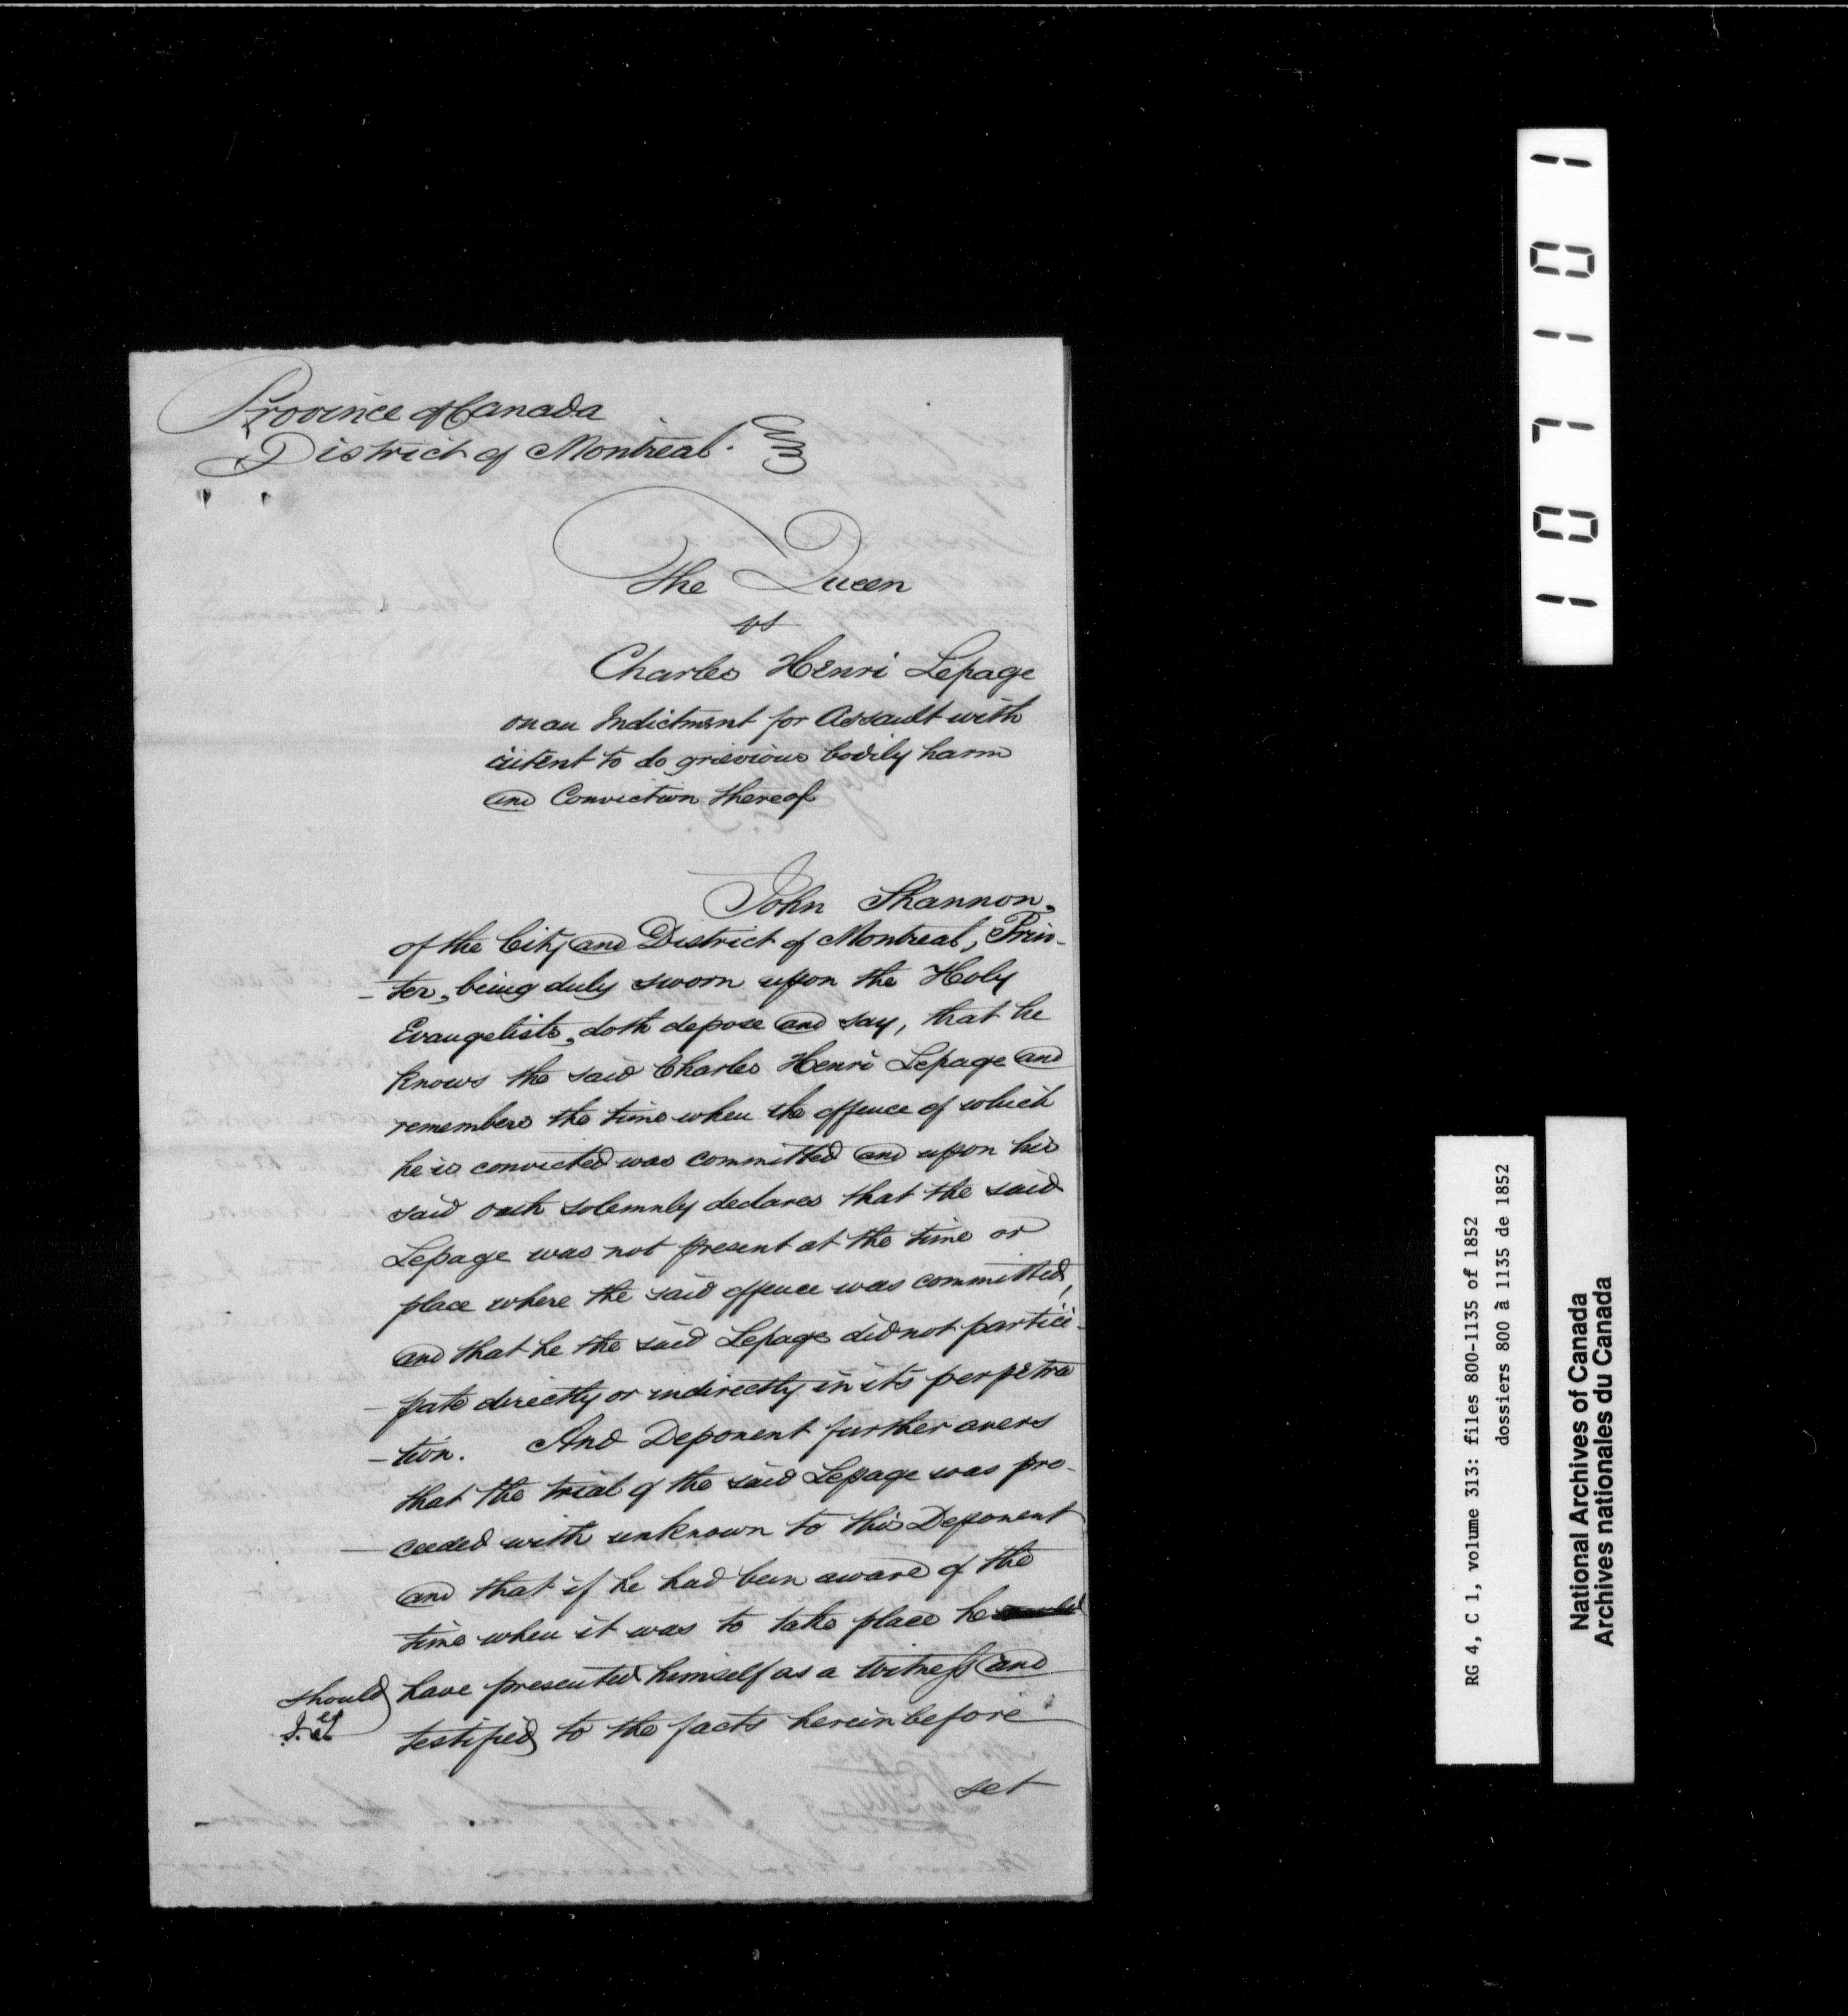 Province of Canada
District of Montreal.
The Queen
vs
Charles Henri Lepage
on an Indictment for Assault with
intent to do grievious bodily harm
and Conviction thereof
John Shannon,
of the City and District of Montreal, Prin-
-ter, being duly sworn upon the Holy
Evangelists, doth depose and say, that he
knows the said Charles Henri Lepage and
remembers the time when the offence of which
he is convicted was committed and upon his
said oath solemnly declares that the said
Lepage was not present at the time or
place where the said offence was committed,
and that he the said Lepage did not partici-
-pate directly or indirectly in its perpetra
-tion. And Deponent further avers
that the trial of the said Lepage was pro-
ceeded with unknown to this Deponent
and that if he had been aware of the
time when it was to take place he
should have presented himself as a Witness and
testified to the facts hereinbefore
set
1071101
RG 4, C 1, volume 313: files 800-1135 of 1852
dossiers 800 à 1135 de 1852
National Archives of Canada
Archives nationales du Canada